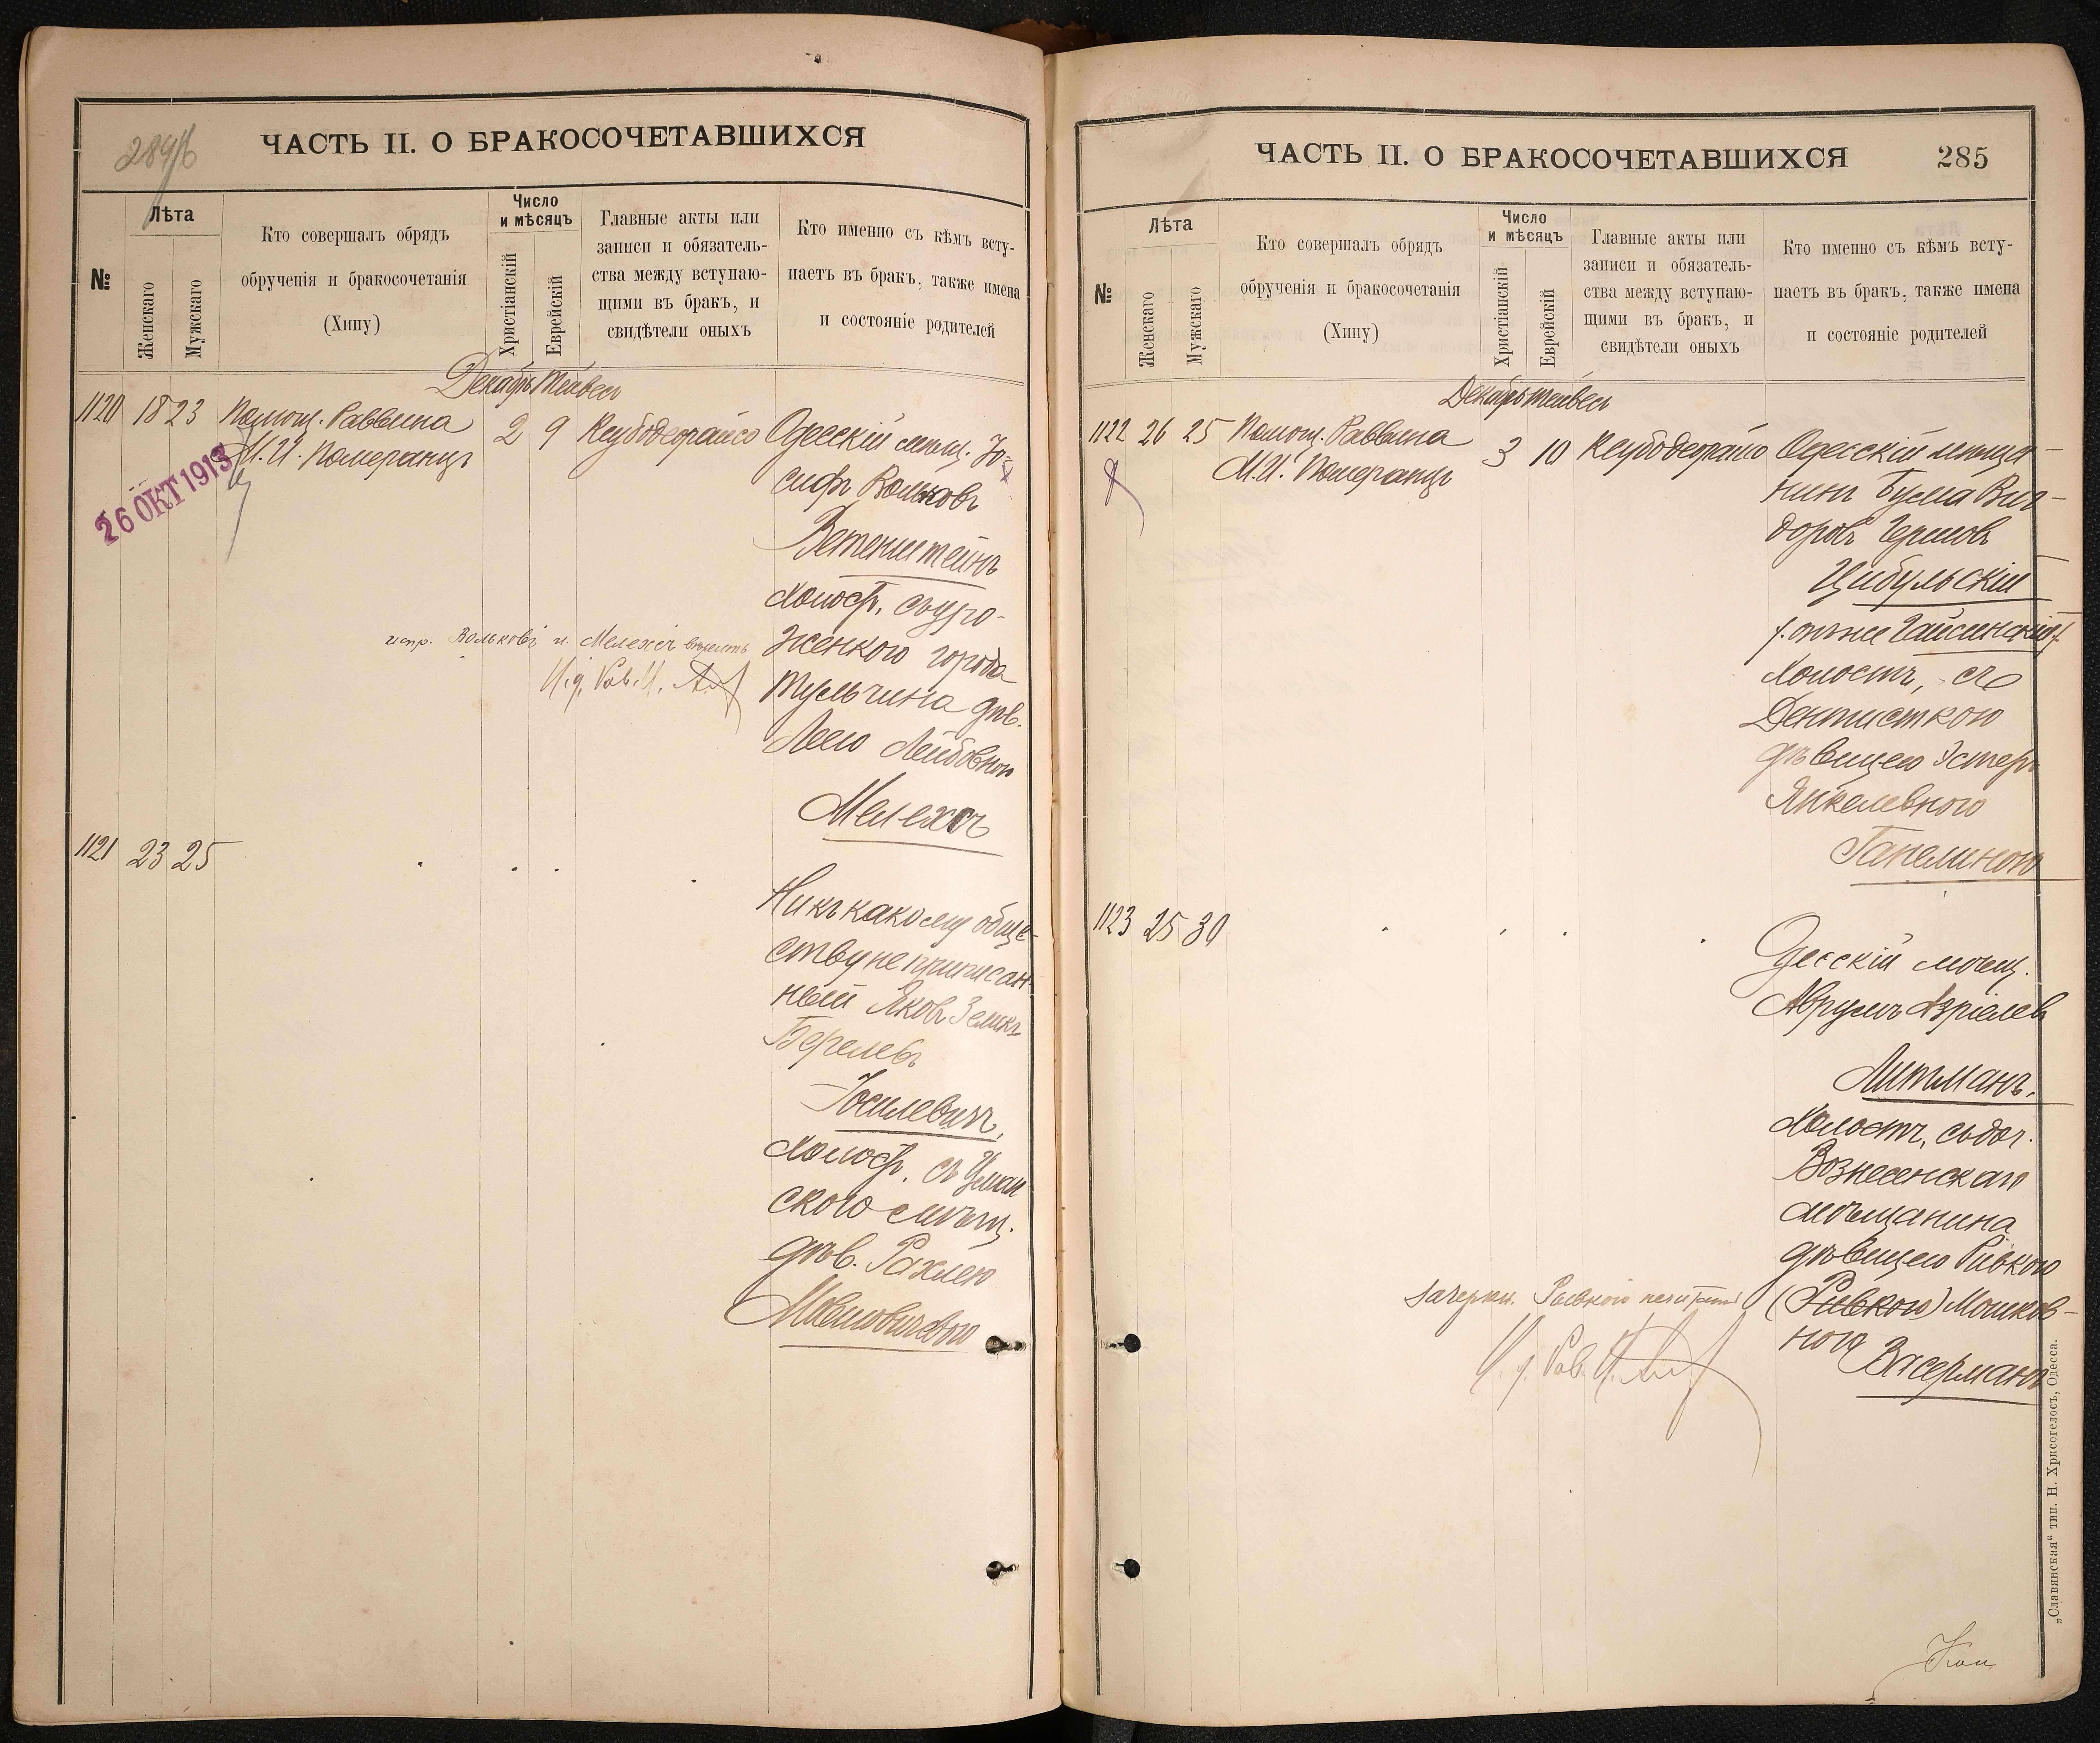 284/б
ЧАСТЬ II. О БРАКОСОЧЕТАВШИХСЯ
№
Лѣта
Женскаго
Мужскаго
Кто совершалъ обрядъ
обрученія и бракосочетанія
(Хипу)
Число
и мѣсяцъ
Христіанскій
Еврейскій
Главные акты или
записи и обязатель-
ства между вступаю-
щими въ бракъ, и
свидѣтели оныхъ
Кто именно съ кѣмъ всту-
паетъ въ бракъ, также имена
и состояніе родителей
Декабрь Тейвесъ
1120 18 23 Помощ. Раввина
М.И. Померанцъ
2 9 Ксубодеорайсо
Одесскій мѣщ. Іо-
сифъ Вольковъ
Ветенштейнъ
холост, съ уро-
женкою города
Тульчина дѣв.
Леею Лейбовною
Мелехъ
26 ОКТ 1913
испр. Вольковъ и Мелехъ вѣрить
И.д. Рав.
1121 23 25
Ни къ какому обще-
ству не приписан-
ный Яковъ Зеликъ
Берелевъ
Іосилевичъ,
холост, съ Уман
ского мѣщ.
дѣв. Рахлею
Мовшовичевою
ЧАСТЬ II. О БРАКОСОЧЕТАВШИХСЯ
285
№
Лѣта
Женскаго
Мужскаго
Кто совершалъ обрядъ
обрученія и бракосочетанія
(Хипу)
Число
и мѣсяцъ
Христіанскій
Еврейскій
Главные акты или
записи и обязатель-
ства между вступаю-
щими въ бракъ, и
свидѣтели оныхъ
Кто именно съ кѣмъ всту-
паетъ въ бракъ, также имена
и состояніе родителей
Декабрь Тейвесъ
1122 26 25 Помощ. Раввина
М.И. Померанцъ
3 10 Ксубодеорайсо
Одесскій мѣща-
нинъ Бума Виг-
доровъ Гершовъ
Цибульскій
холостъ, съ
Дентисткою
дѣвицею Эстеръ
Янкелевною
Гапелиною
1123 25 30
Одесскій мѣщ.
Аврумъ Азріелевъ
Литманъ,
холостъ, съ доч.
Вознесенскаго
мѣщанина
дѣвицею Ривкою
(Ривкою) Мошков-
ною
Васерманъ
зачеркн. Ривкою не читать
И.д. Рав.
„Славянская“ тип. Н. Хрисогелосъ, Одесса.